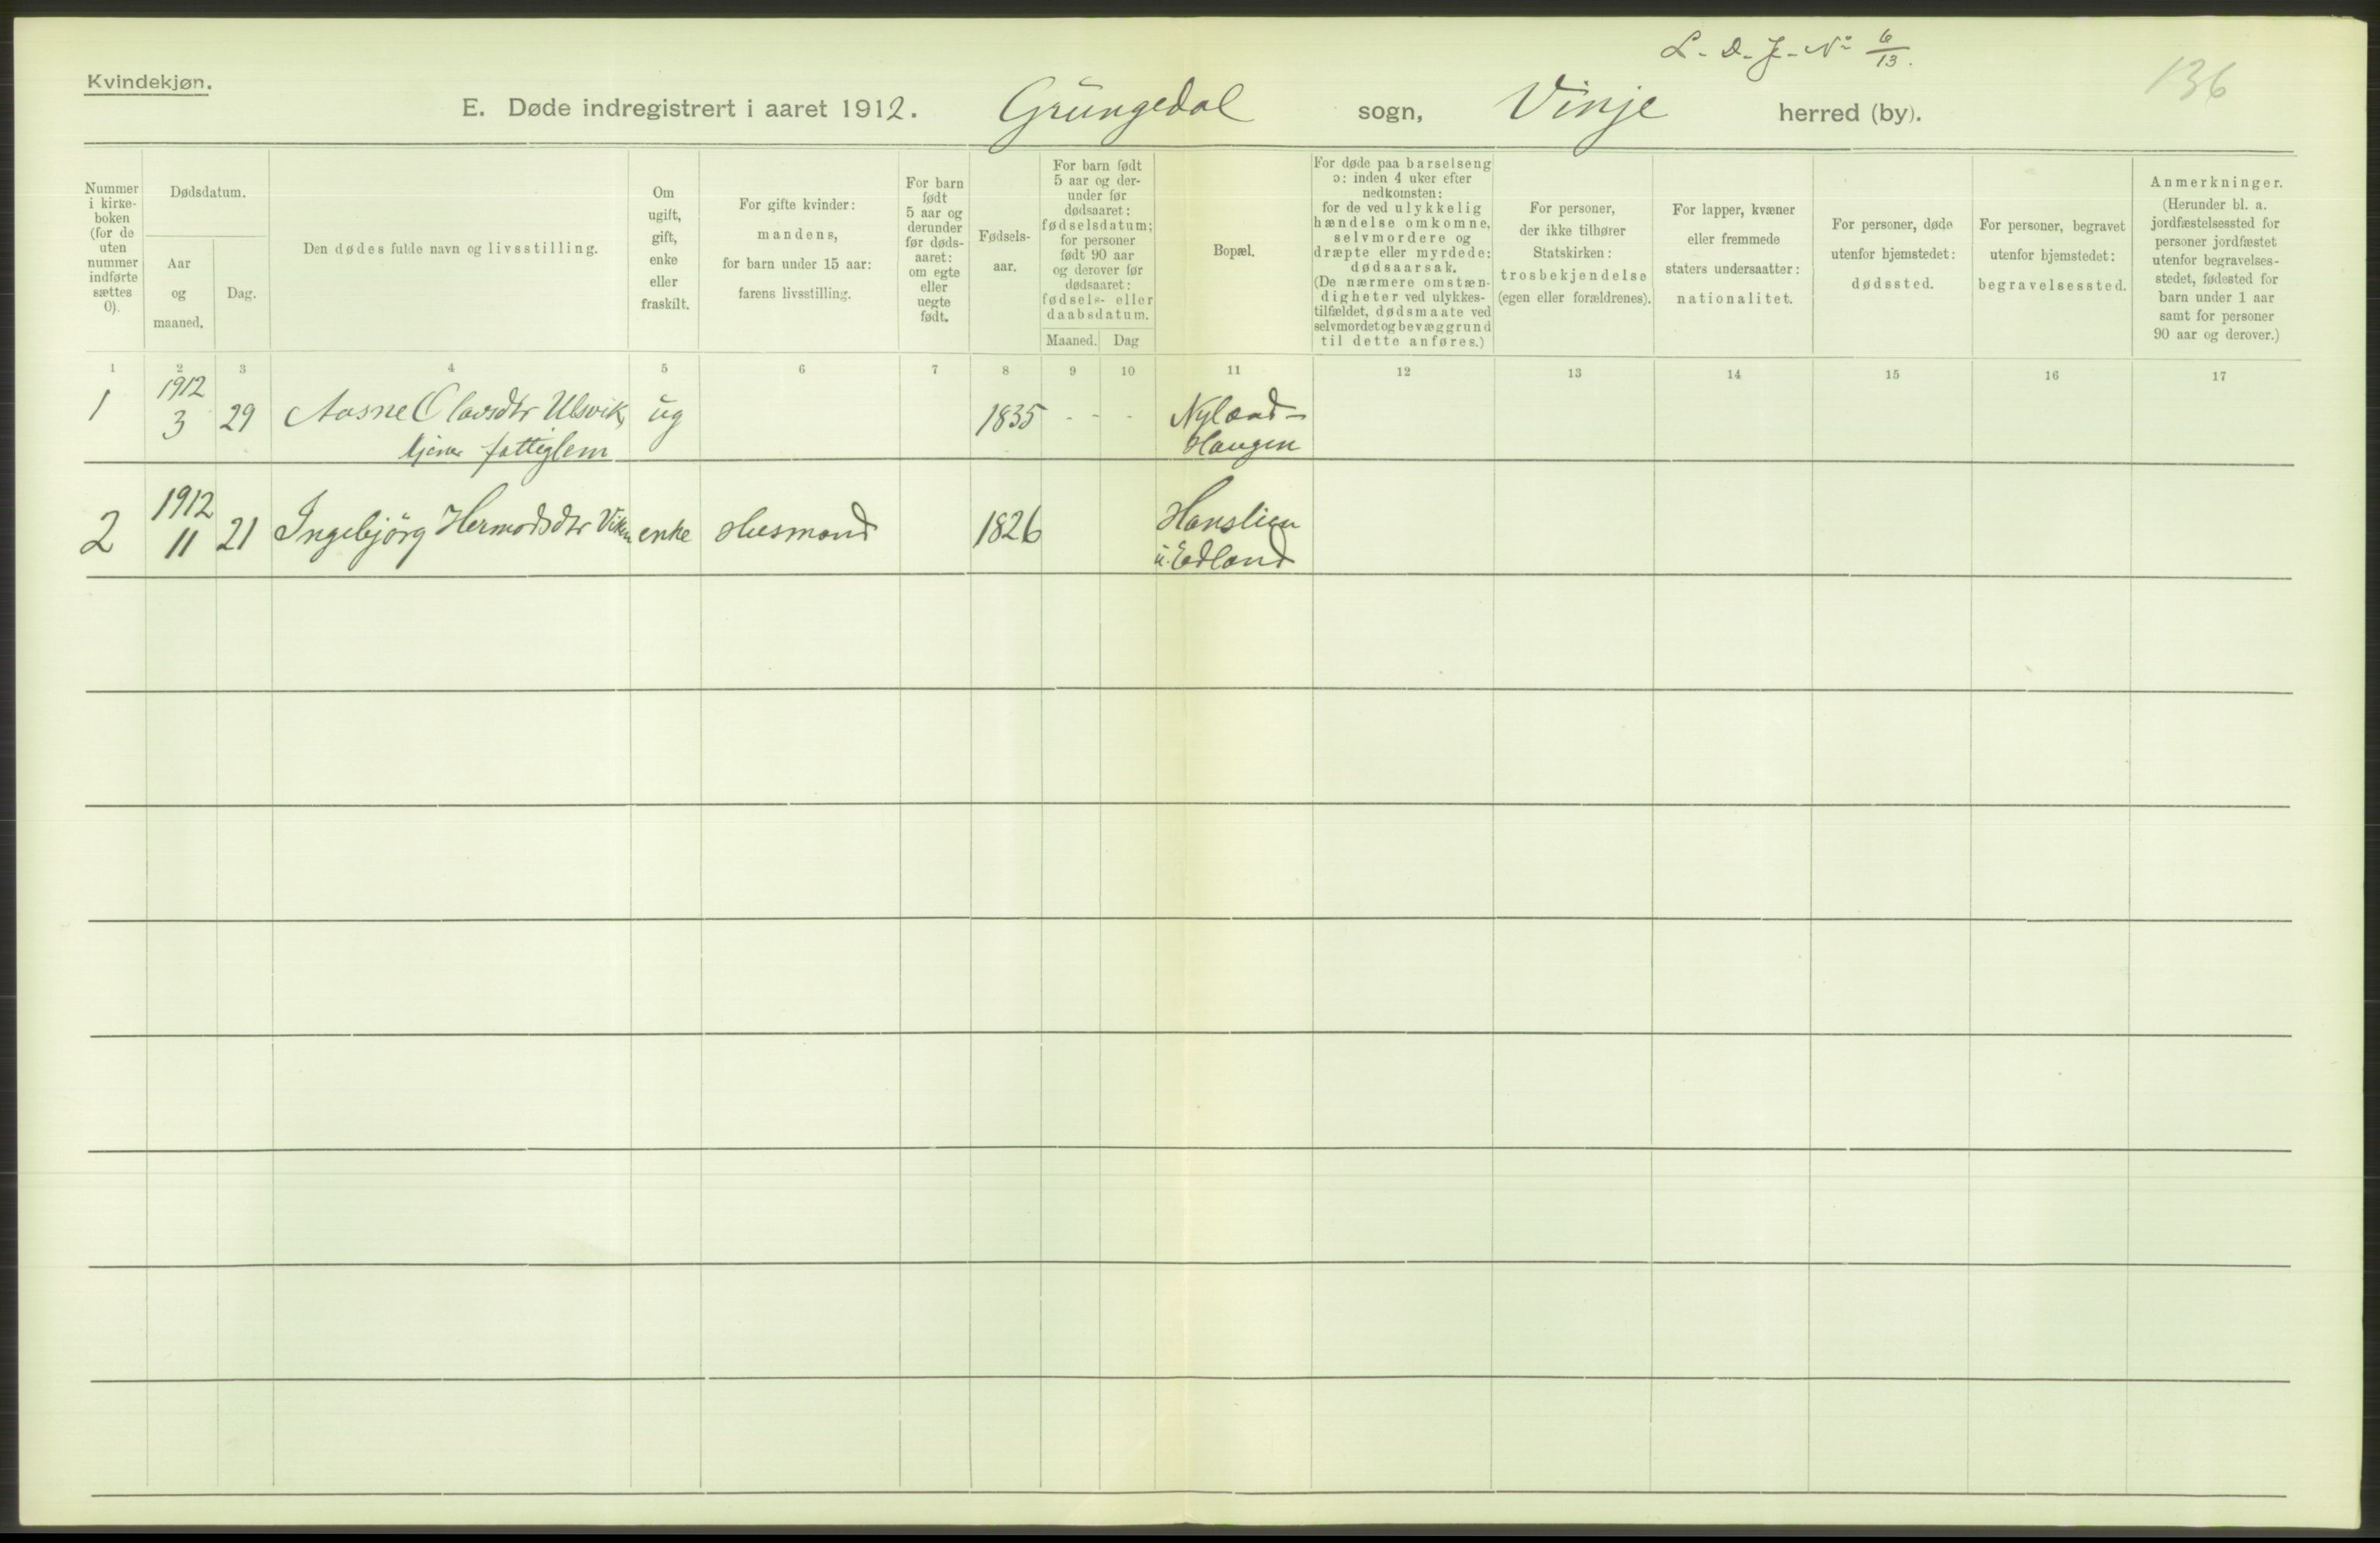 L. D. J. No 6/13.
136
Kvindekjøn.
E. Døde indregistrert i aaret 1912. Grungedal sogn, Vinje herred (by).
Nummer i kirke-boken (for de uten nummer indførte sættes 0).
Dødsdatum.
Aar og maaned.
Dag.
Den dødes fulde navn og livsstilling.
Om ugift, gift, enke eller fraskilt.
For gifte kvinder: mandens, for barn under 15 aar: farens livsstilling.
For barn født 5 aar og derunder før døds-aaret: om egte eller uegte født.
Fødsels-aar.
For barn født 5 aar og der-under før dødsaaret: fødselsdatum; for personer født 90 aar og derover før dødsaaret: fødsels- eller daabsdatum.
Maaned. Dag
Bopæl.
For døde paa barselseng ɔ: inden 4 uker efter nedkomsten: for de ved ulykkelig hændelse omkomne, selvmordere og dræpte eller myrdede: dødsaarsak. (De nærmere omstæn-digheter ved ulykkes-tilfældet, dødsmaate ved selvmordet og bevæggrund til dette anføres.)
For personer, der ikke tilhører Statskirken: trosbekjendelse (egen eller forældrenes).
For lapper, kvæner eller fremmede staters undersaatter: nationalitet.
For personer, døde utenfor hjemstedet: dødssted.
For personer, begravet utenfor hjemstedet: begravelsessted.
Anmerkninger. (Herunder bl. a. jordfæstelsessted for personer jordfæstet utenfor begravelses-stedet, fødested for barn under 1 aar samt for personer 90 aar og derover.)
1 2 3 4 5 6 7 8 9 10 11 12 13 14 15 16 17
1 1912 3 29 Aasne Olavsdtr Ulsvik, ug 1835 - - - Nyland-
fattiglem Haugen
2 1912 11 21 Ingebjörg Hermodsdtr Viken enke Husmand 1826 Hanslien
u. Edland